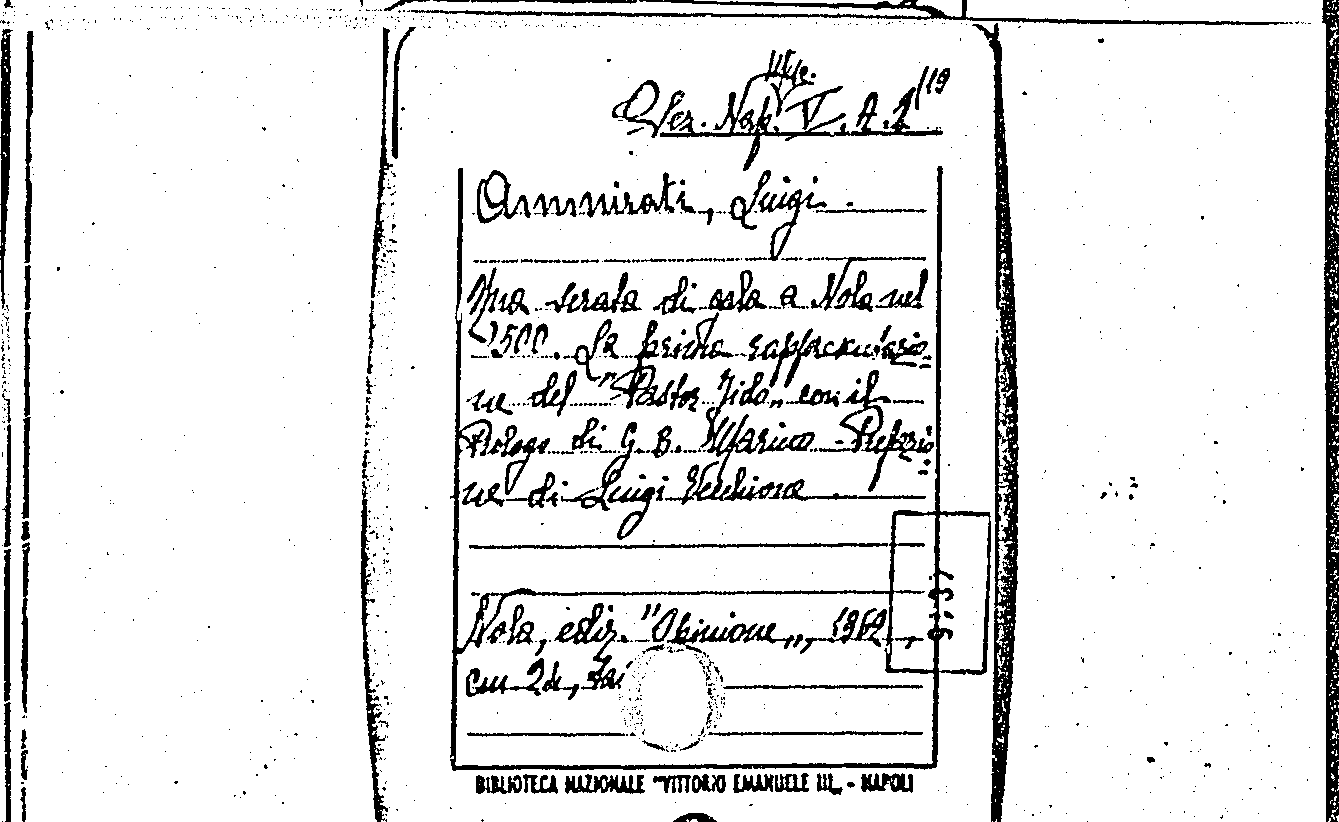 Sez. Nap. V. A. 2
Ammirati, Luigi.
Una serata di gala a Nola nel
1500. La prima rappresentazio=
ne del "Pastor Fido„ con il
Prologo di G. B. Marino - Prefazio
ne di Luigi Vecchione.
Nola, ediz. "Opinione„, 1962,
cm 24,
BIBLIOTECA NAZIONALE "VITTORIO EMANUELE III„ - NAPOLI